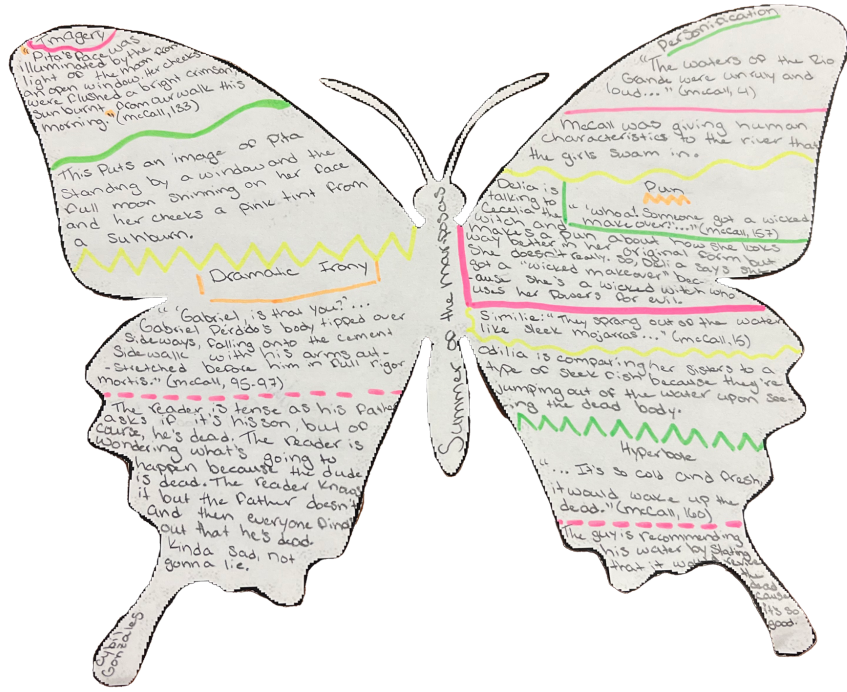 Imagery
"Pita's face was
illuminated by the
light of the moon from
an open window. Her cheeks
were flushed a bright crimson,
sunburnt from our walk this
morning." (McCall, 183)
This puts an image of Pita
standing by a window and the
full moon shinning on her face
and her cheeks a pink tint from
a sunburn.
Dramatic Irony
"'Gabriel, is that you?'...
Gabriel Perdido's body tipped over
sideways, falling onto the cement
sidewalk with his arms out-
-stretched before him in full rigor
mortis." (McCall, 95-97)
The reader is tense as his father
asks if it's his son, but of
course, he's dead. The reader is
wondering what's going to
happen because the dude
is dead. The reader knows
it but the father doesn't
and then everyone finds
out that he's dead.
Kinda sad, not
gonna lie.
Cybil
Gonzales
Summer of the mariposas
Personification
"The waters of the Rio
Grande were unruly and
loud..." (McCall, 4)
McCall was giving human
characteristics to the river that
the girls swam in.
Pun
"'Whoa! Someone got a wicked
makeover!'..." (McCall, 157)
Delia is
talking to
Cecelia the
witch and
makes a pun about how she looks
way better in her original form but
she doesn't really. So, Delia says she
got a "wicked makeover" bec-
-ause she's a wicked witch who
uses her powers for evil.
Similie: "They sprang out of the water
like sleek mojarras..." (McCall, 15)
Odilia is comparing her sisters to a
type of seek fish because they're
jumping out of the water upon see-
-ing the dead body.
Hyperbole
"... It's so cold and fresh,
it would wake up the
dead." (McCall, 160)
The guy is recommending
his water by stating
that it would revive
the
dead
cause
it's so
good.